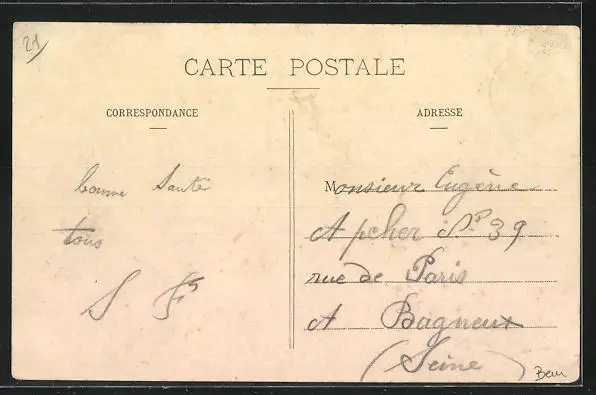 21
CARTE POSTALE
CORRESPONDANCE
ADRESSE
bonne Santé
tous
S F
Monsieur Eugène
Apcher N° 39
rue de Paris
A Bagneux
(Seine)